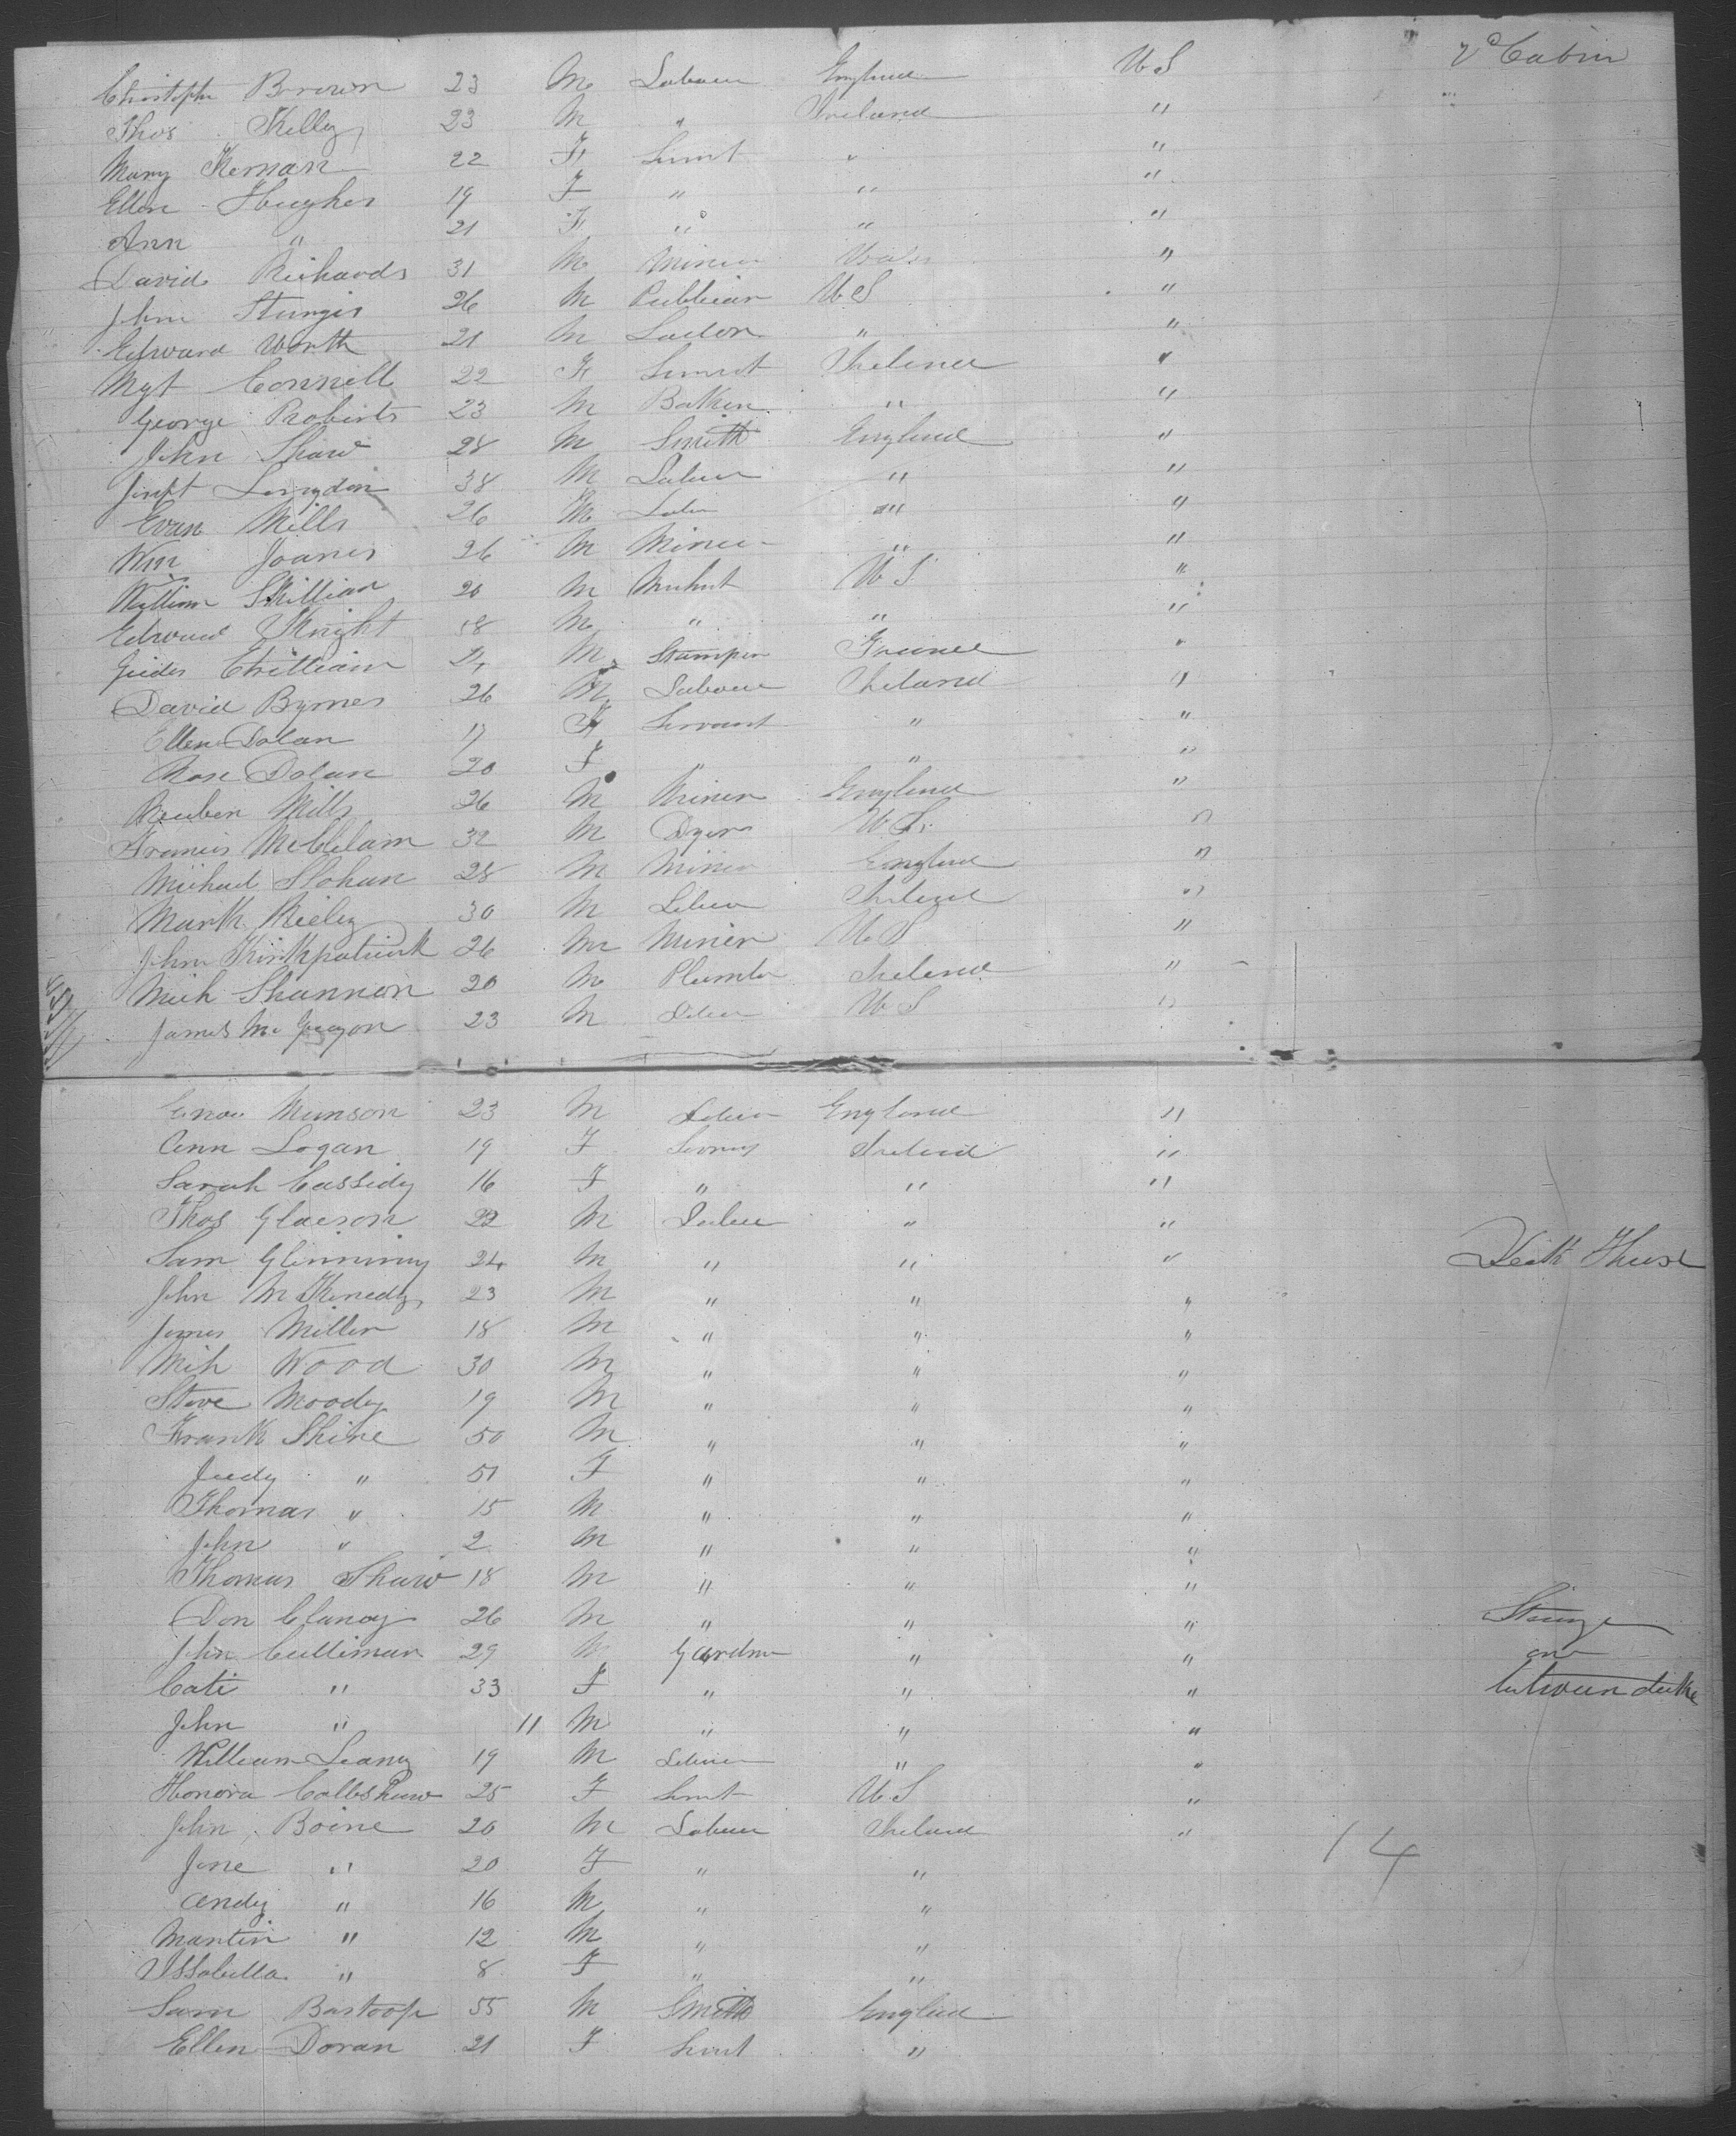 Christophr Brown 23 M Labour England U S 2d Cabin
Thos Kelly 23 M " Ireland "
Mary Kernan 22 F Servnt " "
Ellen Hughes 19 F " " "
Ann " 21 F " " "
David Richards 31 M Miner Wales "
John Sturgis 26 M Publican U S "
Edward Worth 21 M " "
Mgt Connell 22 F Servnt Ireland "
George Roberts 23 M Baker " "
John Shaw 28 M Smith England "
Langdon 38 M Labour " "
Evan Mills 26 M Labr " "
Wm Joanes 26 M Miner " "
William Skillian 20 M U S "
Edward Knight 58 M " " "
Christian M Stamper France "
David Byrnes 26 M Labour Ireland "
Ellen Dolan 17 F Servant " "
Rose Dolan 20 F " " "
Reuben Mills 26 M Miner England "
Francis McClelam 32 M Dyer U S "
Michael Slohan 28 M Miner England "
Mark Rieley 30 M Labour Ireland "
John Kirkpatrick 26 M Miner U S "
Mich Shannon 20 M Plumber Ireland "
James Mc Guygon 23 M Labour U S "
Munson 23 M Labour England "
Ann Logan 19 F Ireland "
Sarah Cassidy 16 F " " "
Thos Glaeson 22 M Labour " "
Sam Glinniny 24 M " " "
John McKenedy 23 M " " "
James Miller 18 M " " "
Mich Wood 30 M " " "
Steve Moody 19 M " " "
Frank Shine 50 M " " "
Judy " 51 F " " "
Thomas " 15 M " " "
John " 2 M " " "
Thomas Shaw 18 M " " "
Don Clancy 26 M " " "
John Cullinan 29 M Gardner " "
Cate " 33 F " " "
John " 11 M " " "
William Leany 19 M Labour " "
Honora Colleshaw 25 F Servnt U.S "
John Boine 20 M Labour Ireland "
Jane " 20 F " "
14
Andy " 16 M " "
Martin " 12 M " "
Issabella " 8 F " "
Sam Bastoop 55 M Smith England
Ellen Doran 21 F Servnt "